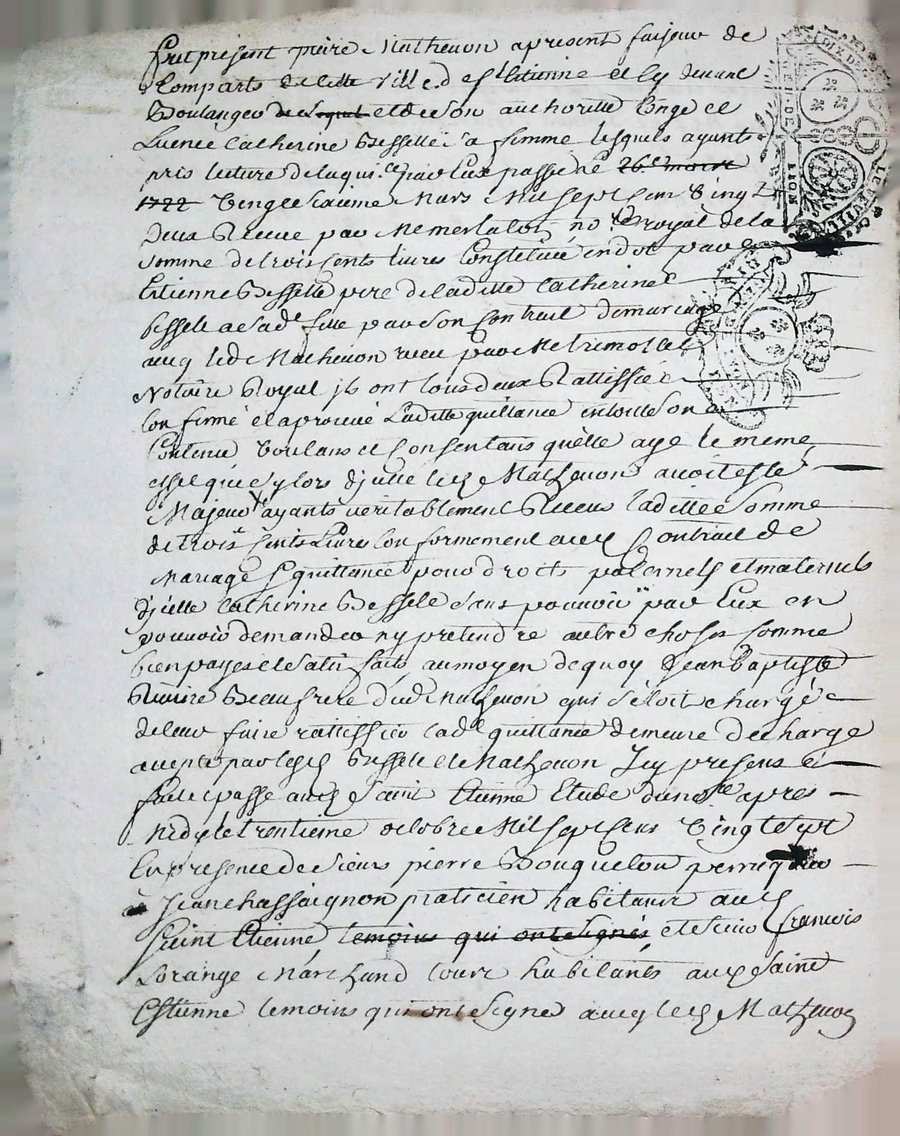 fut present pierre Matheuon apresent faiseur de
Comparts de cette Ville de st Etienne et cy deuant
Boulanger et de son authoritté
Catherine Besselle sa femme lesquels ayants
pris lecture de la quitce par Eux passé le 26e mars
1722 Vingt sixieme Mars Mil sept sen Vingt
Deux Receue par Me no.re royal de la
somme de trois cents liures Constituée en dot par
Estienne Besselle pere de laditte Catherine
besselle a sade fille par son Contrait de mariage
auq led. Matheuon receu par Me tremolet
Notaire Royal ils ont tous deux Rattissié
Confirmé et aprouué Laditte quittance en tout son
Contenu Voulans et Consentans quelle aye le meme
effet que sy lors d'jcelle led. Matheuon auoit esté
Majeur ayants veritablement Receus Laditte somme
de trois Cents Liures Conformement aud. Contrait de
Mariage & quittance pour droits paternels et maternels
d'jcelle Catherine Besselle sans pouuoir par Eux en
pouuoir demander ny pretendre autre choses comme
bien payés et satisfaits au moyen de quoy Jean Baptiste
Beaufrere dud. Matheuon qui s'estoit chargé
de leur faire rattissier lade quittance demeure decharge
par lesd. Besselle et Matheuon Icy presens
fait et passé aud. Saint Etienne Etude du no.re apres
Midy le trentieme octobre Mil sept sens Vingt sept
En presence de sieurs pierre perruquier
& Jean chassaignon praticien habitans aud.
Saint Etienne temoins qui ont signés et sieur francois
Lorange Marchand tours habitants aud. Saint
Estienne temoins qui ont signe auec led. Matheuon